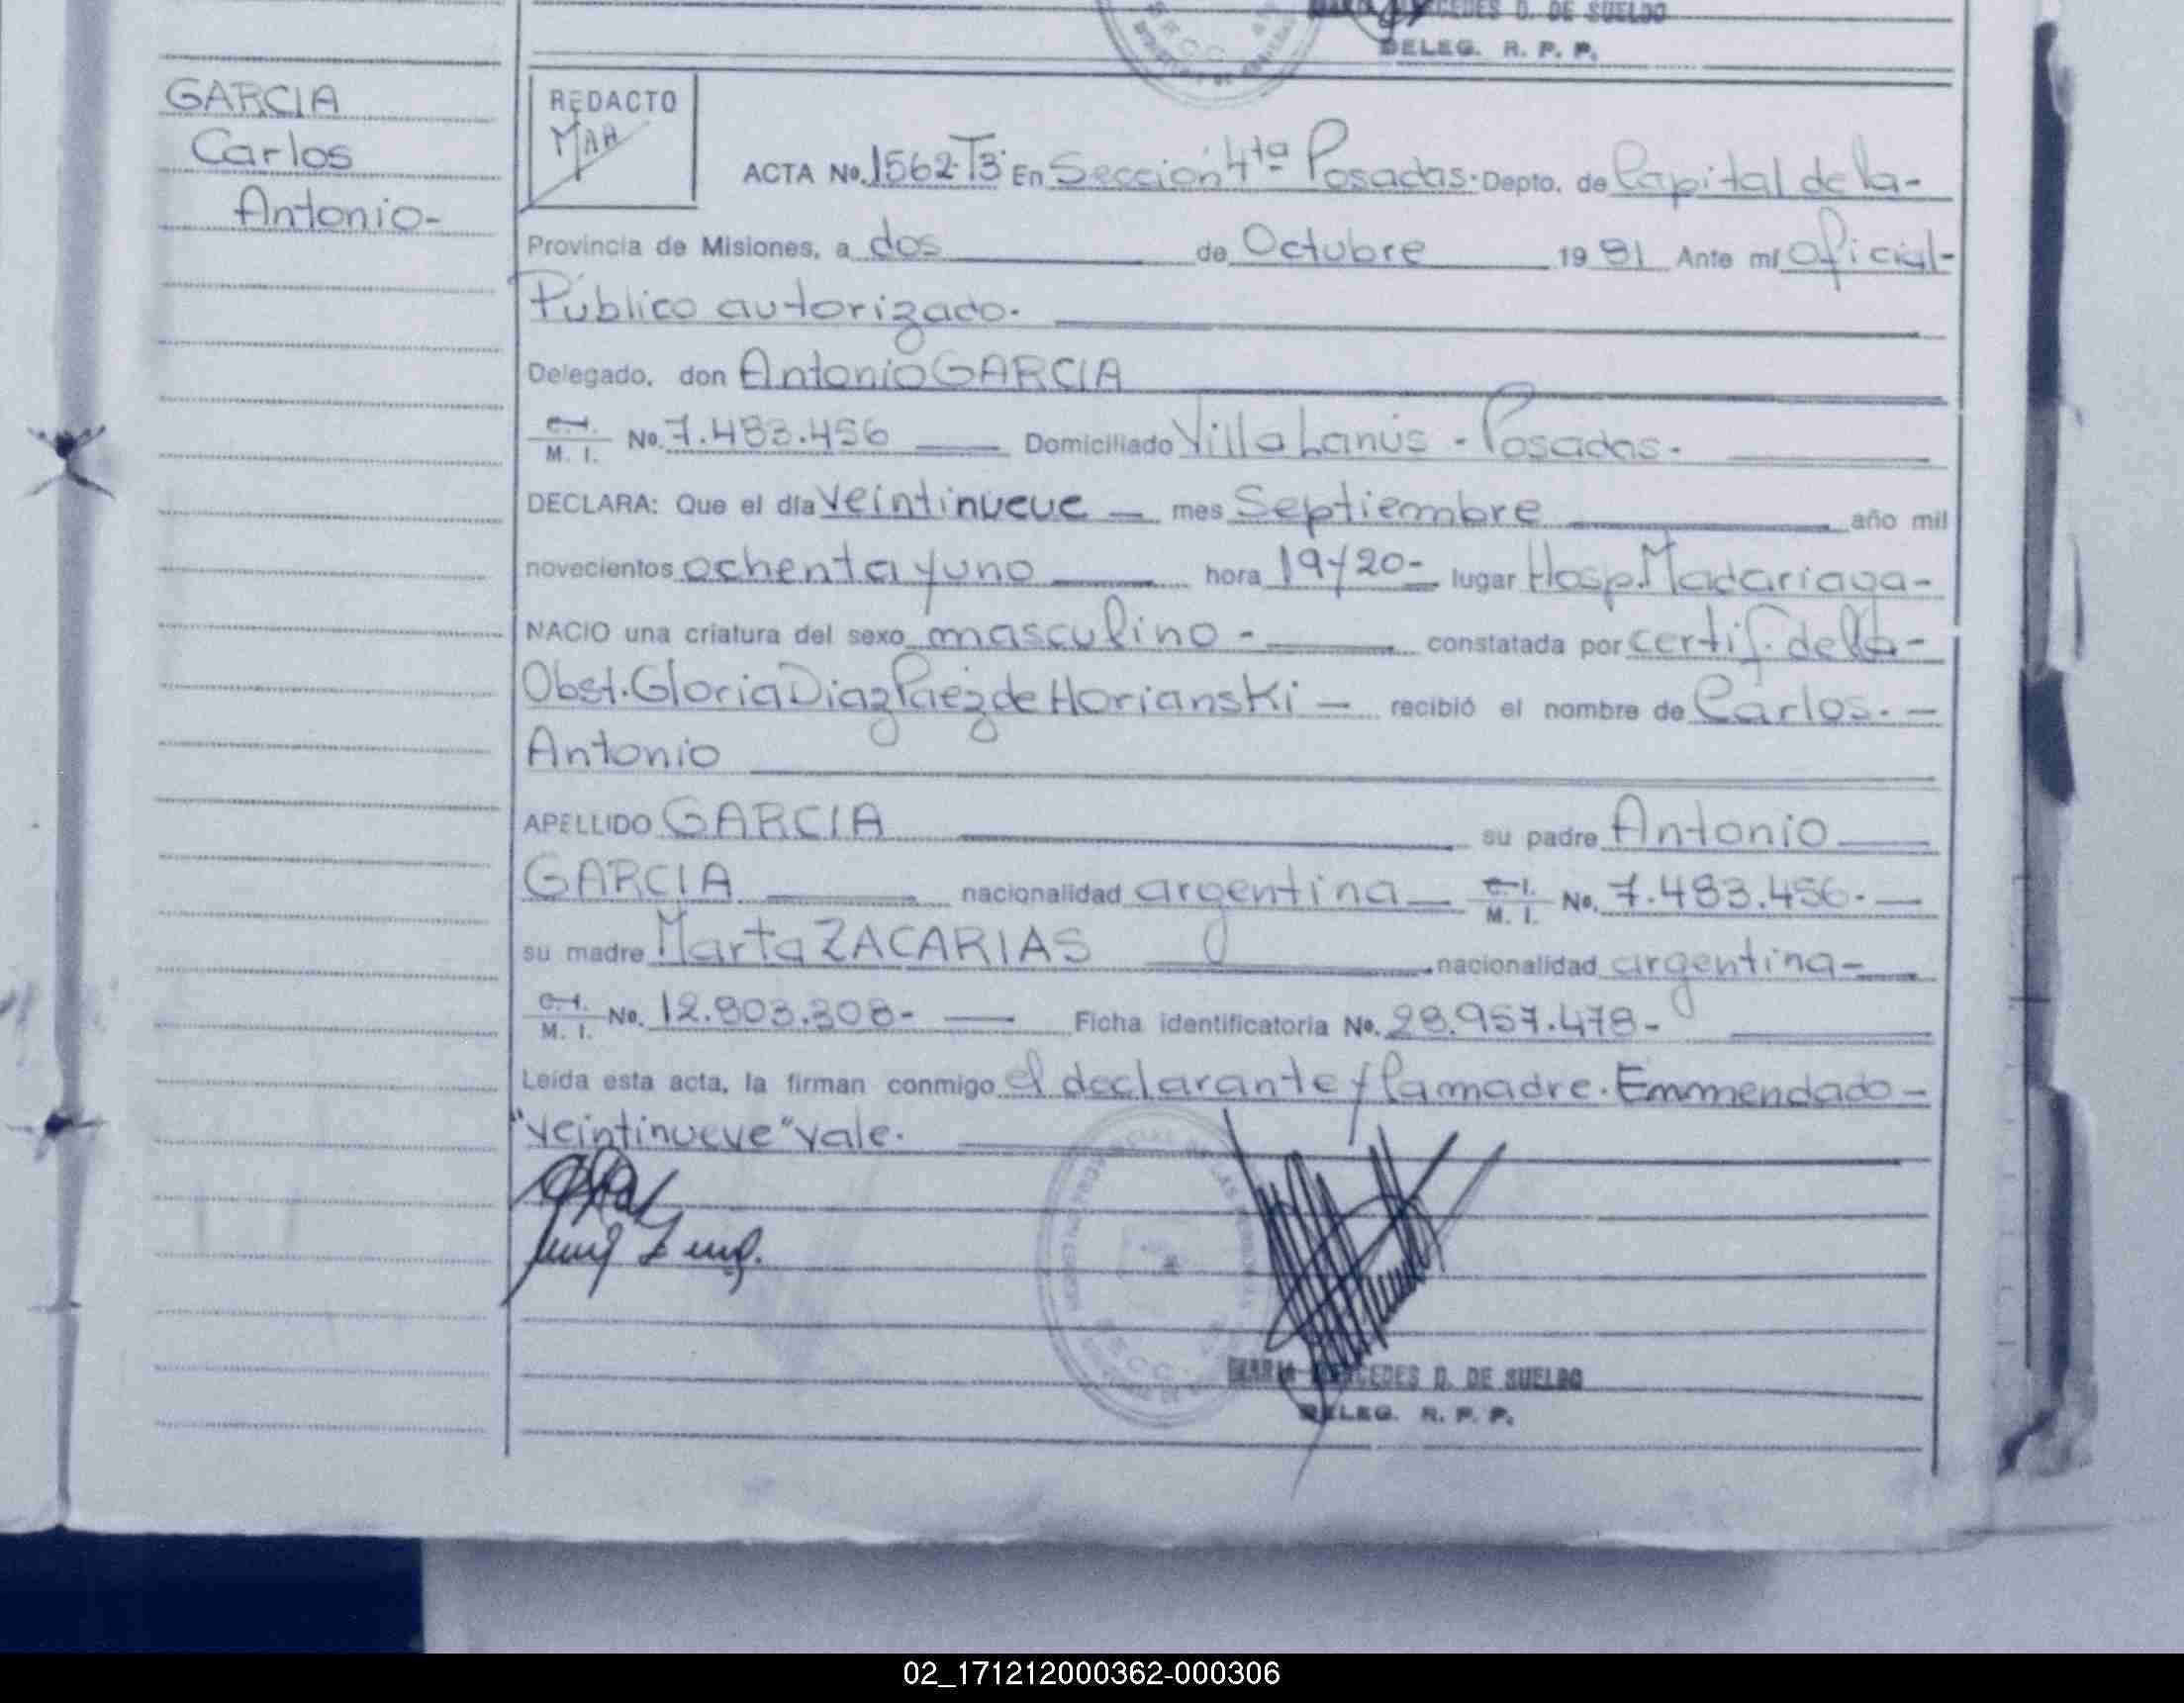 MERCEDES D. DE SUELDO
DELEG. R. P. P.
GARCIA
Carlos
Antonio-
REDACTO
MAH
ACTA No. 1562-T3- En Sección 4ta Posadas- Depto. de Capital de la-
Provincia de Misiones, a dos de Octubre 1981 Ante mí Oficial-
Público autorizado.
Delegado, don Antonio GARCIA
C.I.
M. I. No. 7.483.456 Domiciliado Villa Lanús - Posadas.
DECLARA: Que el día veintinueve mes Septiembre año mil
novecientos ochenta y uno hora 19/20- lugar Hosp. Madariaga-
NACIO una criatura del sexo masculino - constatada por certif. de la-
Obst. Gloria Diaz Paez de Horianski - recibió el nombre de Carlos. -
Antonio
APELLIDO GARCIA su padre Antonio
GARCIA nacionalidad argentina C.I.
M. I. No. 7.483.456.-
su madre Marta ZACARIAS nacionalidad argentina-
C.I.
M. I. No. 12.803.308- Ficha identificatoria No. 28.957.478-
Leída esta acta, la firman conmigo el declarante y la madre. Emmendado-
"veintinueve" vale.
MARIA MERCEDES D. DE SUELDO
DELEG. R. P. P.
02_171212000362-000306